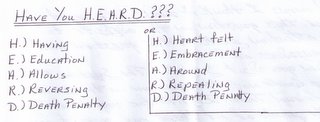 HAVE YOU H.E.A.R.D. ???
H.) HAVING
E.) EDUCATION
A.) ALLOWS
R.) REVERSING
D.) DEATH PENALTY
OR
H.) HEART FELT
E.) EMBRACEMENT
A.) AROUND
R.) REPEALING
D.) DEATH PENALTY